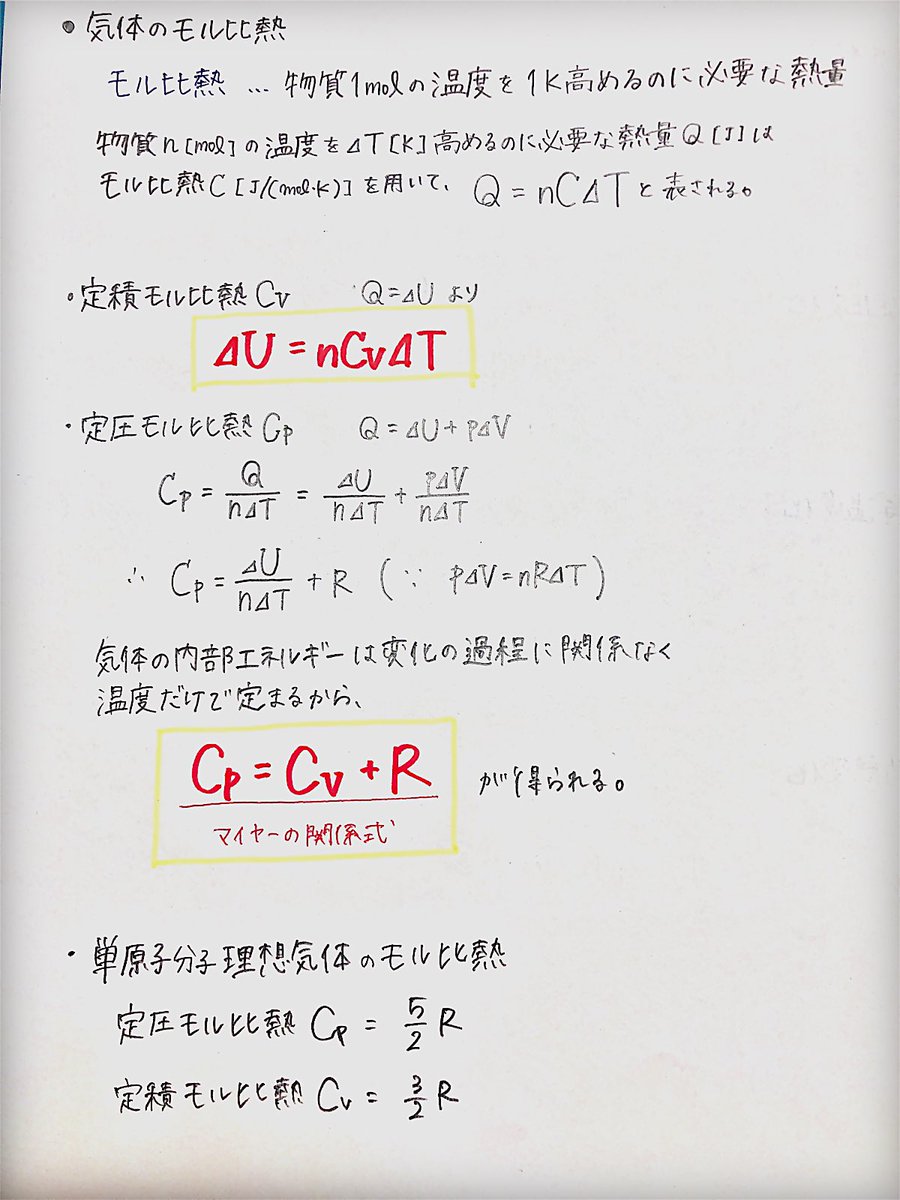 ● 気体のモル比熱
モル比熱 … 物質1molの温度を1K高めるのに必要な熱量
物質n[mol]の温度をΔT[K]高めるのに必要な熱量Q[J]は
モル比熱C[J/(mol・K)]を用いて、 Q=nCΔTと表される。
・定積モル比熱Cv Q=ΔUより
ΔU=nCvΔT
・定圧モル比熱Cp Q=ΔU+pΔV
Cp = Q/nΔT = ΔU/nΔT + pΔV/nΔT
∴ Cp = ΔU/nΔT + R (∵ pΔV=nRΔT)
気体の内部エネルギーは変化の過程に関係なく
温度だけで定まるから、
Cp=Cv+R が得られる。
マイヤーの関係式
・単原子分子理想気体のモル比熱
定圧モル比熱 Cp = 5/2 R
定積モル比熱 Cv = 3/2 R